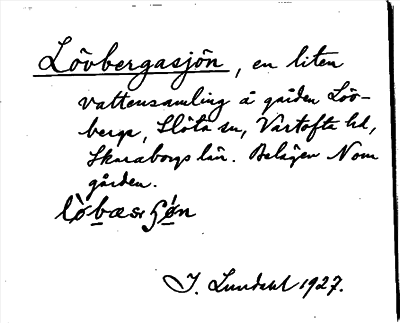 Lövbergasjön, en liten
vattensamling å gården Löv-
berga, Slöta sn, Vartofta hd,
Skaraborgs län. Belägen N om
gården.
J. Lundahl 1927.